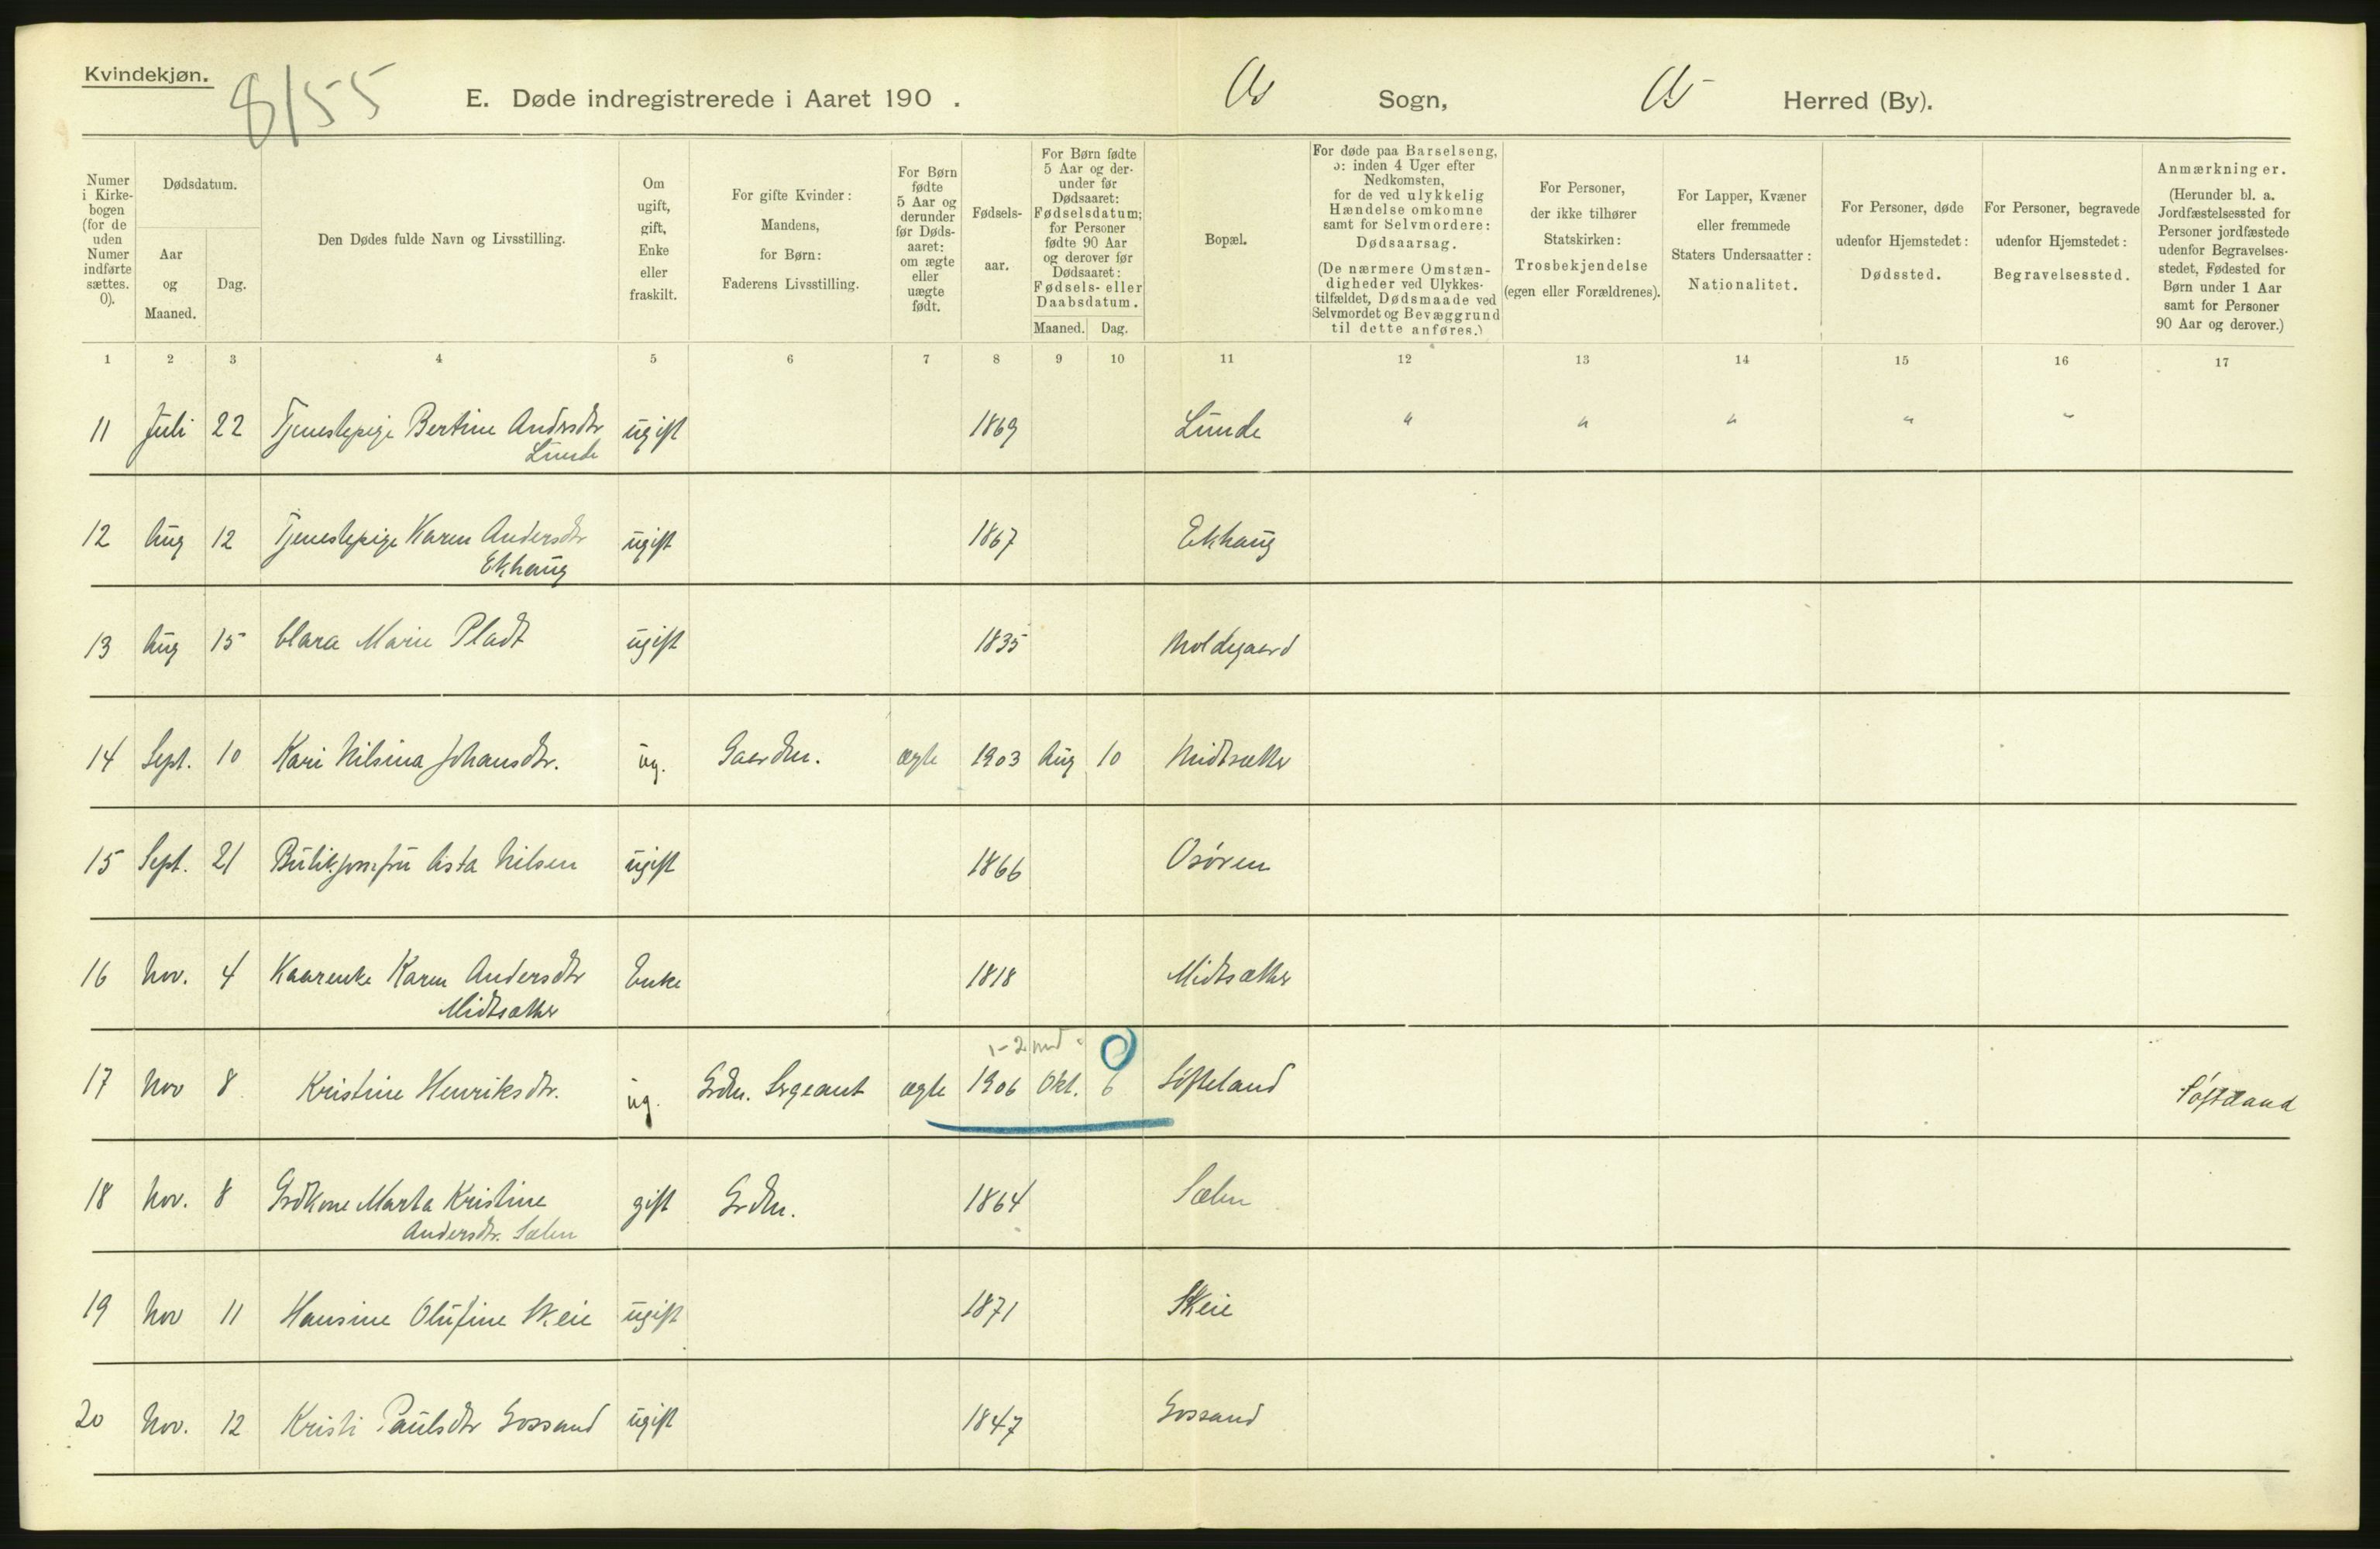 Kvindekjøn.
8/55
E. Døde indregistrerede i Aaret 190 . Os Sogn, Os Herred (By).
Numer i Kirkebogen (for de uden Numer indførte sættes. 0).
Dødsdatum.
Aar og Maaned.
Dag.
Den Dødes fulde Navn og Livsstilling.
Om ugift, gift, Enke eller fraskilt.
For gifte Kvinder: Mandens, for Børn: Faderens Livsstilling.
For Børn fødte 5 Aar og derunder før Dødsaaret: om ægte eller uægte født.
Fødselsaar.
For Børn fødte 5 Aar og derunder før Dødsaaret: Fødselsdatum; for Personer fødte 90 Aar og derover før Dødsaaret: Fødsels- eller Daabsdatum.
Maaned. Dag.
Bopæl.
For døde paa Barselseng, ɔ: inden 4 Uger efter Nedkomsten, for de ved ulykkelig Hændelse omkomne samt for Selvmordere: Dødsaarsag. (De nærmere Omstændigheder ved Ulykkestilfældet, Dødsmaade ved Selvmordet og Bevæggrund til dette anføres.)
For Personer, der ikke tilhører Statskirken: Trosbekjendelse (egen eller Forældrenes).
For Lapper, Kvæner eller fremmede Staters Undersaatter: Nationalitet.
For Personer, døde udenfor Hjemstedet: Dødssted.
For Personer, begravede udenfor Hjemstedet: Begravelsessted.
Anmærkninger. (Herunder bl. a. Jordfæstelsessted for Personer jordfæstede udenfor Begravelsesstedet, Fødested for Børn under 1 Aar samt for Personer 90 Aar og derover.)
1 2 3 4 5 6 7 8 9 10 11 12 13 14 15 16 17
11 Juli 22 Tjenestepige Bertine Andrsdtr ugift 1869 Lunde " " " " "
Lunde
12 Aug 12 Tjenestepige Karen Andersdtr ugift 1867 Ekhaug
Ekhaug
13 Aug 15 Clara Marie Pladt ugift 1835 Moldegaard
14 Sept. 10 Kari Nilsina Johansdtr. ug. Gaardm. ægte 1903 Aug 10 Midtsæther
15 Sept. 21 Butik.jomfru Asta Nilsen ugift 1866 Osøren
16 Nov. 4 Kaarenke Karen Andersdtr Enke 1818 Midtsæther
Midtsæther
1-2 md.
17 Nov 8 Kristine Henriksdtr. ug. Grdm. Sergeant ægte 1906 Okt. 6 Søfteland Søfteland
18 Nov. 8 Grdkone Marta Kristine gift Grdm. 1864 Sælen
Andersdtr. Sælen
19 Nov 11 Hansine Olufine Skeie ugift 1871 Skeie
20 Nov. 12 Kristi Paulsdtr Gossand ugift 1847 Gossand